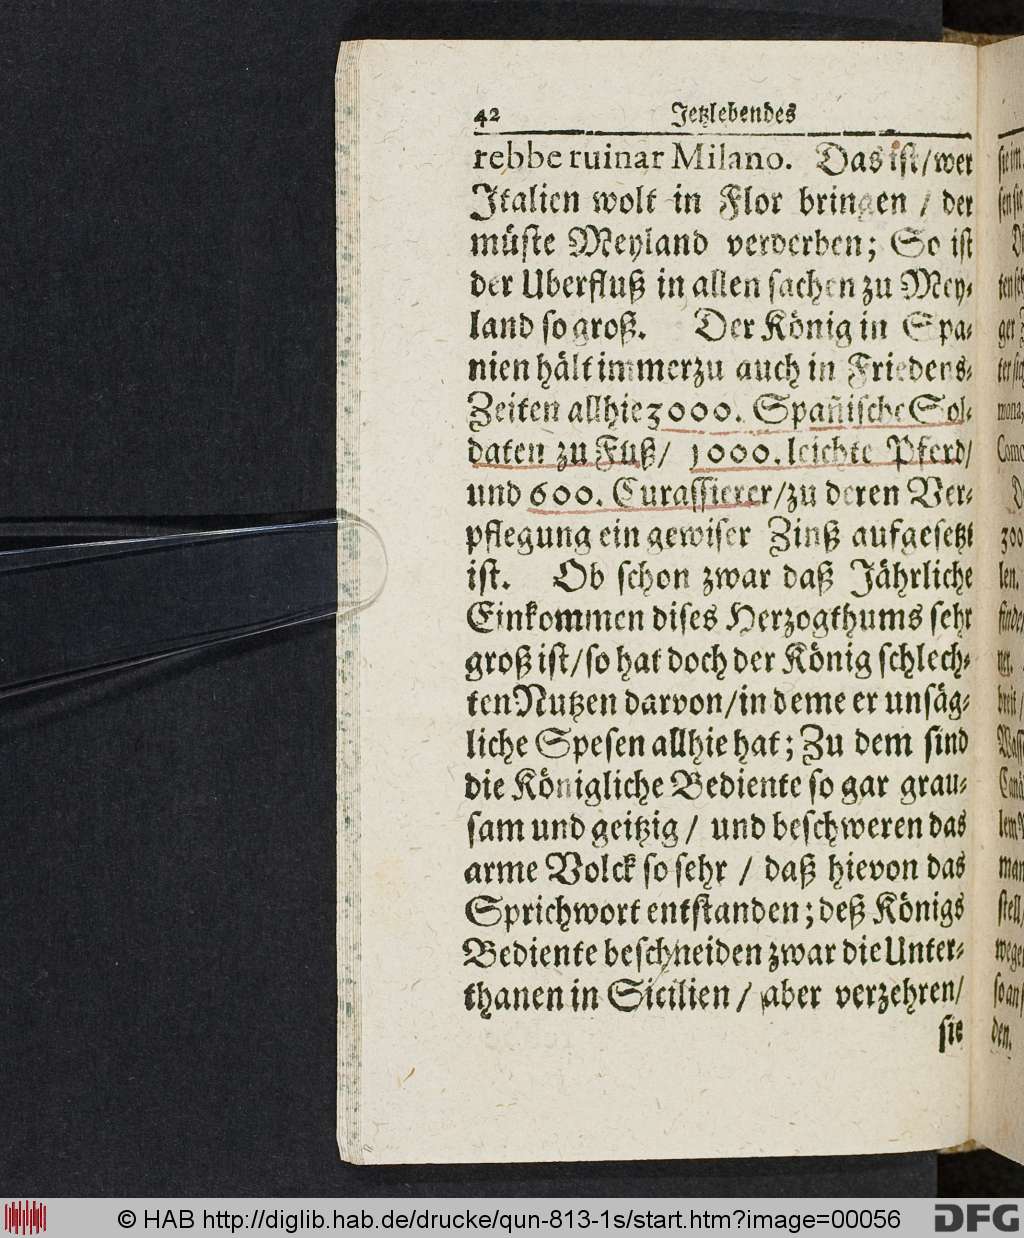 42 Jetzlebendes
rebbe ruinar Milano. Das ist / wer
Italien wolt in Flor bringen / der
müste Meyland verderben; So ist
der Uberfluß in allen sachen zu Mey-
land so groß. Der König in Spa-
nien hält immerzu auch in Friedens-
Zeiten allhie 3000. Spañische Sol-
daten zu Fuß / 1000. leichte Pferd /
und 600. Curassierer / zu deren Ver-
pflegung ein gewiser Zinß aufgesetzt
ist. Ob schon zwar daß Jährliche
Einkommen dises Herzogthums sehr
groß ist / so hat doch der König schlech-
ten Nutzen darvon / in deme er unsäg-
liche Spesen allhie hat; Zu dem sind
die Königliche Bediente so gar grau-
sam und geitzig / und beschweren das
arme Volck so sehr / daß hievon das
Sprichwort entstanden; deß Königs
Bediente beschneiden zwar die Unter-
thanen in Sicilien / aber verzehren /
sie
© HAB http://diglib.hab.de/drucke/qun-813-1s/start.htm?image=00056
DFG